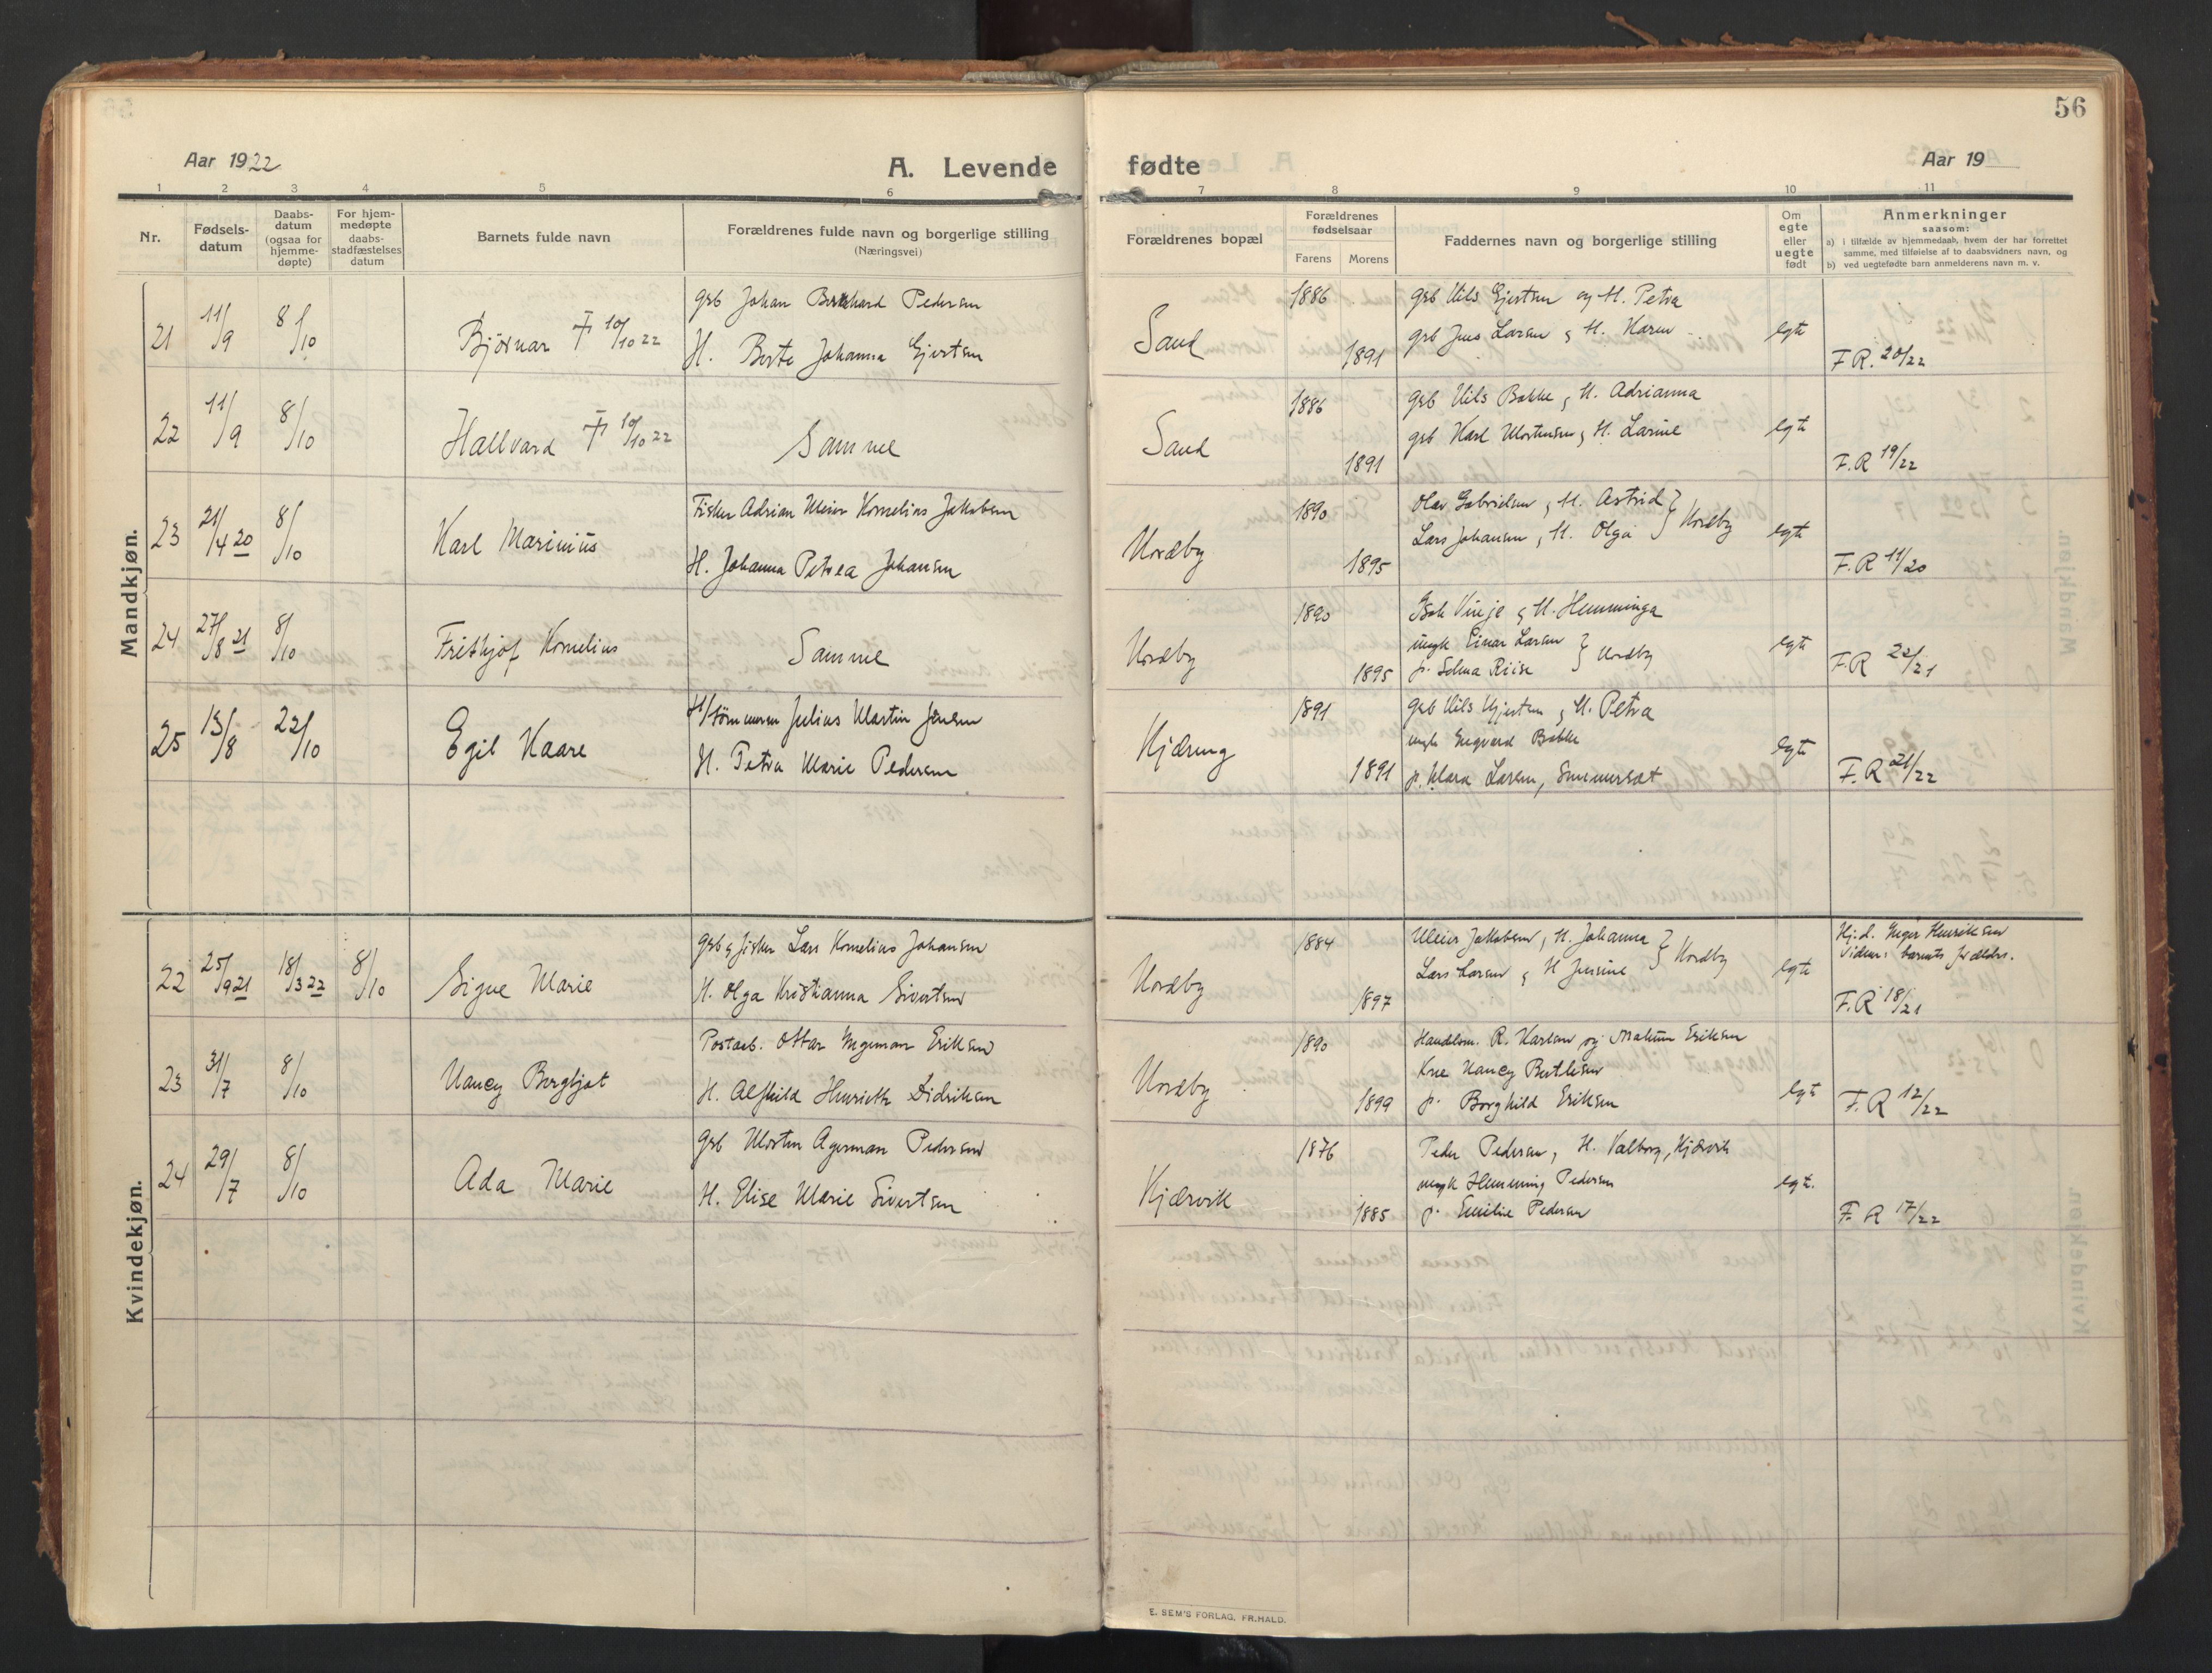 56
Aar 1922
A. Levende fødte
Aar 19
1 2 3 4 5 6 7 8 9 10 11
Nr.
Fødsels-
datum
Daabs-
datum
(ogsaa for
hjemme-
døpte)
For hjem-
medøpte
daabs-
stadfæstelses
datum
Barnets fulde navn
Forældrenes fulde navn og borgerlige stilling
(Næringsvei)
Forældrenes bopæl
Forældrenes
fødselsaar
Farens Morens
Faddernes navn og borgerlige stilling
Om
egte
eller
uegte
født
Anmerkninger
saasom:
a) i tilfælde av hjemmedaab, hvem der har forrettet
samme, med tilføielse af to daabsvidners navn, og
b) ved uegtefødte barn anmelderens navn m. v.
Mandkjøn.
21 11/9 8/10 Bjørnar † 10/10 22
Gsb Johan Bernhard Pedersen
H. Berte Johanna Gjertsen
Sand 1886 1891
Gsb Nils Gjertsen og H. Petra
gsb Jens Larsen & H. Karen
egte
F.R. 20/22
22 11/9 8/10 Hallvard † 10/10 22
Samme
Sand 1886 1891
Gsb Nils Bakke & H. Adrianna
gsb Karl Mortensen & H. Larine
egte
F.R 19/22
23 21/4 20 8/10 Karl Marinius
Fisker Adrian Meier Kornelius Jakobsen
H. Johanna Petrea Johansen
Nordby 1890 1895
Olav Gabrielsen, H. Astrid
Lars Johansen, H. Olga } Nordby
egte
F.R 11/20
24 27/8 21 8/10 Frithjof Kornelius
Samme
Nordby 1890 1895
Isak Vinje & H. Hemminga
ungk Einar Larsen
p. Selma Riise } Nordby
egte
F.R 22/21
25 13/8 22/10 Egil Kaare
Julius Martin Jensen
H. Petra Marie Pedersen
Kjæreng 1891 1891
Gsb Nils Gjertsen & H. Petra
ungk Ingvard Bakke
p. Klara Larsen,
egte
F.R 21/22
Kvindekjøn.
22 25/9 21 18/3 22 8/10 Signe Marie
Gsb & fisker Lars Kornelius Johansen
H. Olga Kristianna Sivertsen
Nordby 1884 1897
Meier Jakobsen, H. Johanna
Lars Larsen & H Jensine } Nordby
egte
Hj.d. Inger Henriksen
Vidner: barnets forældre.
F.R 18/21
23 31/7 8/10 Nancy Bergljot
Postaeb. Ottar Ingeman Eriksen
H. Alfhild Henriette Didriksen
Nordby 1890 1899
Handelsm. R. Karlsen og Eriksen
Nancy Berthsen
p. Borghild Eriksen
egte
F.R 12/22
24 29/7 8/10 Ada Marie
Gsb Morten Agerman Pedersen
H. Elise Marie Sivertsen
Kjærvik 1876 1885
Peder Pedersen, H. Valborg, Kjærvik
ungk Hemming Pedersen
p. Emilie Pedersen
egt.
F. R 17/22
E. SEM'S FORLAG, FR.HALD.